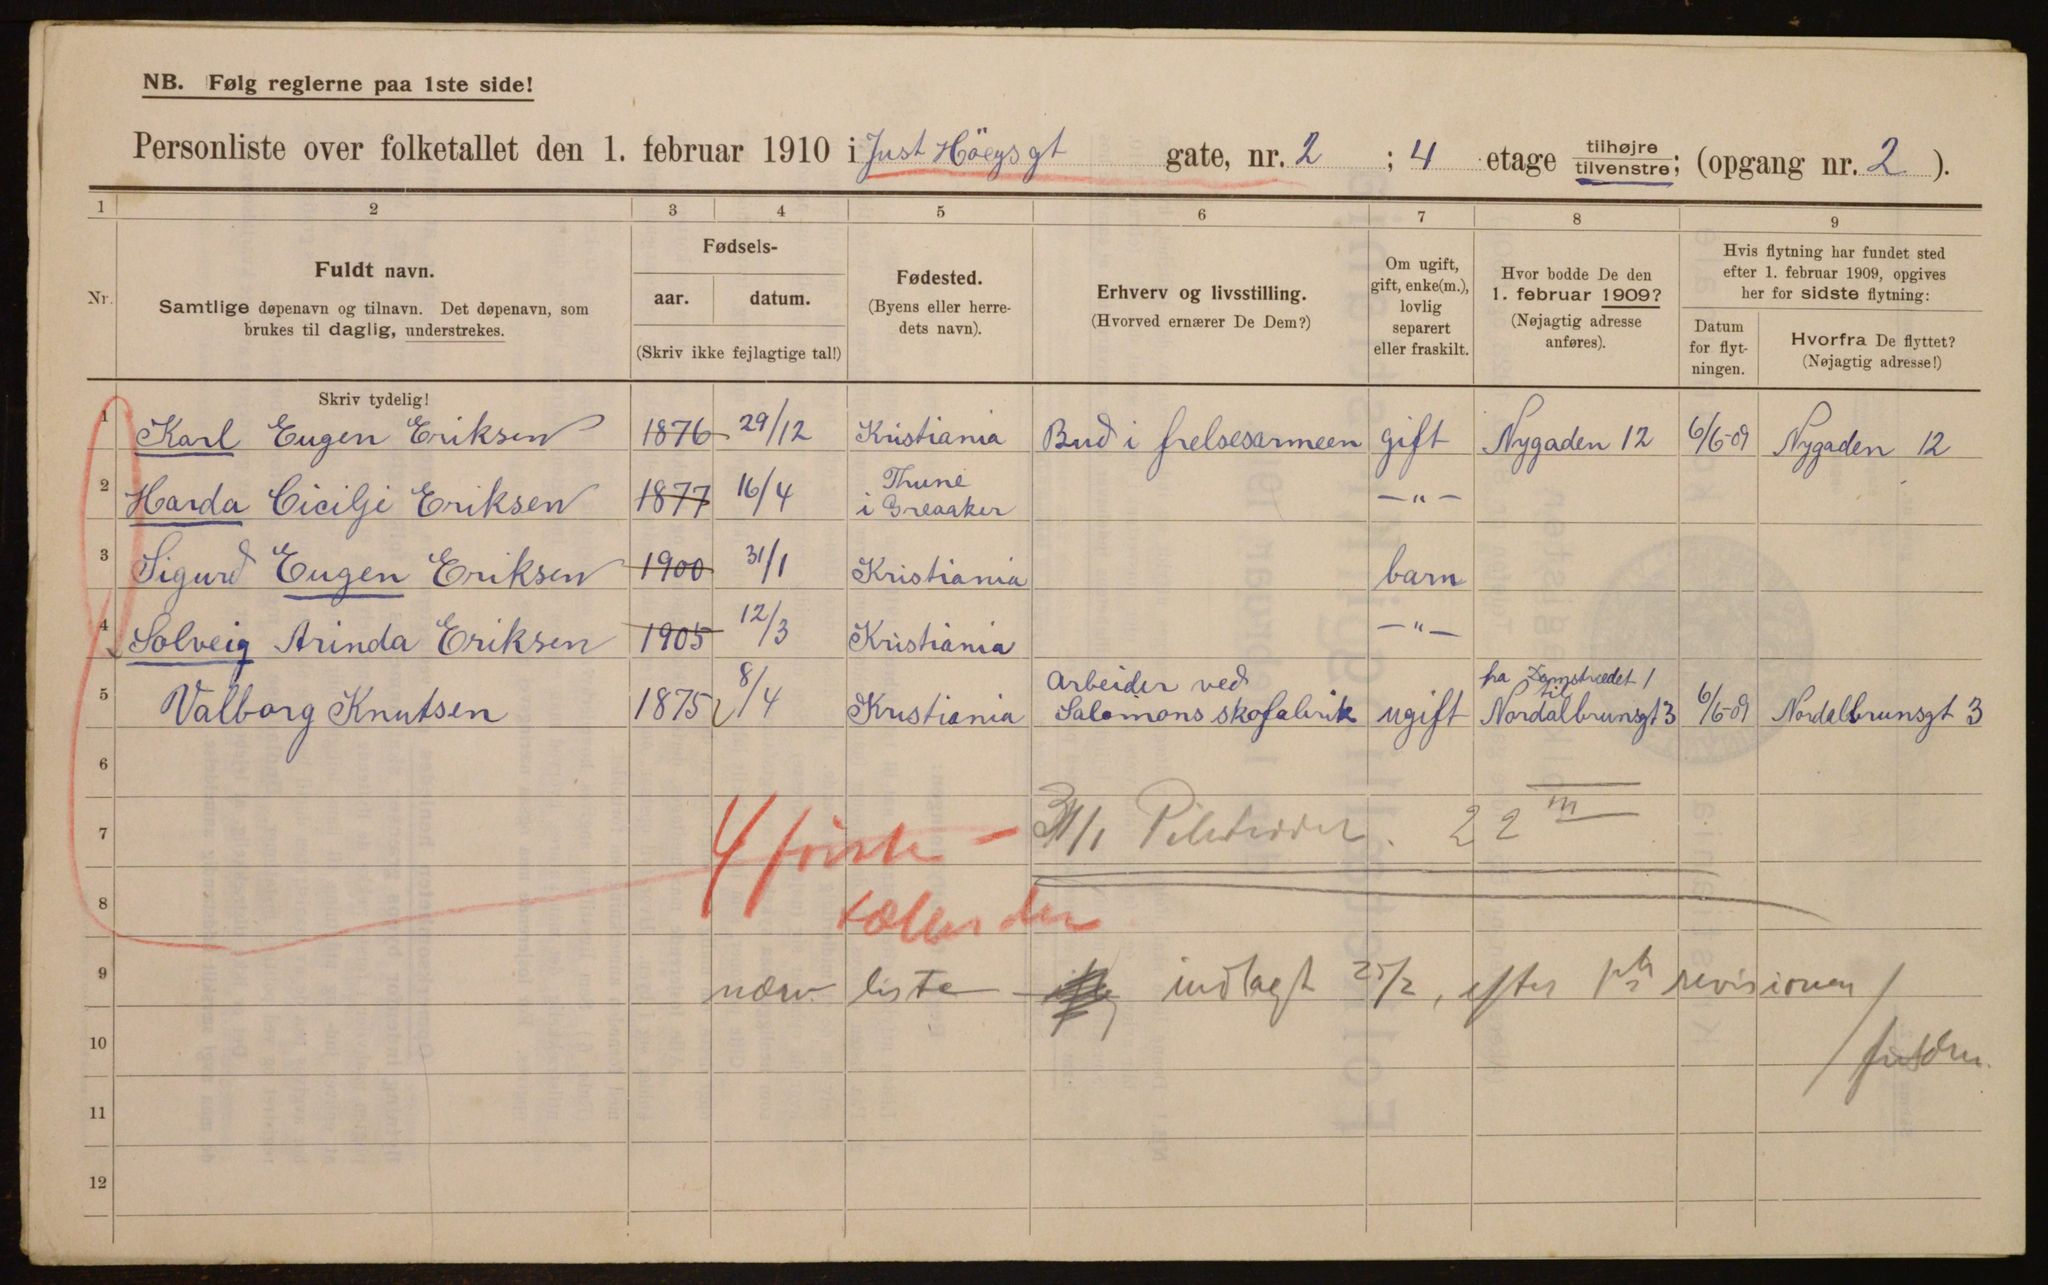 NB. Følg reglerne paa 1ste side!
Personliste over folketallet den 1. februar 1910 i Just Höegs gt gate, nr. 2 ; 4 etage tilhøjre tilvenstre; (opgang nr. 2 ).
1 2 3 4 5 6 7 8 9
Nr.
Fuldt navn.
Samtlige døpenavn og tilnavn. Det døpenavn, som
brukes til daglig, understrekes.
Fødsels-
aar. datum.
(Skriv ikke fejlagtige tal!)
Fødested.
(Byens eller herre-
dets navn).
Erhverv og livsstilling.
(Hvorved ernærer De Dem?)
Om ugift,
gift, enke(m.),
lovlig
separert
eller fraskilt.
Hvor bodde De den
1. februar 1909?
(Nøjagtig adresse
anføres).
Hvis flytning har fundet sted
efter 1. februar 1909, opgives
her for sidste flytning:
Datum
for flyt-
ningen.
Hvorfra De flyttet?
(Nøjagtig adresse!)
Skriv tydelig!
1 Karl Eugen Eriksen 1876 29/12 Kristiania Bud i frelsesarmeen gift Nygaden 12 6/6-09 Nygaden 12
2 Harda Cicilje Eriksen 1877 16/4 Thune i Greaaker —"—
3 Sigurd Eugen Eriksen 1900 31/1 Kristiania barn
4 Solveig Arinda Eriksen 1905 12/3 Kristiania —"—
5 Valborg Knutsen 1875 8/4 Kristiania Arbeider ved Salomons skofabrik ugift fra Domstrædet 1 til Nordalbrunsgt 3 6/6-09 Nordalbrunsgt 3
6
7 4 første 31/1 22 m
8
9 nærv. liste indlagt 25/2, efter revisionen
10
11
12